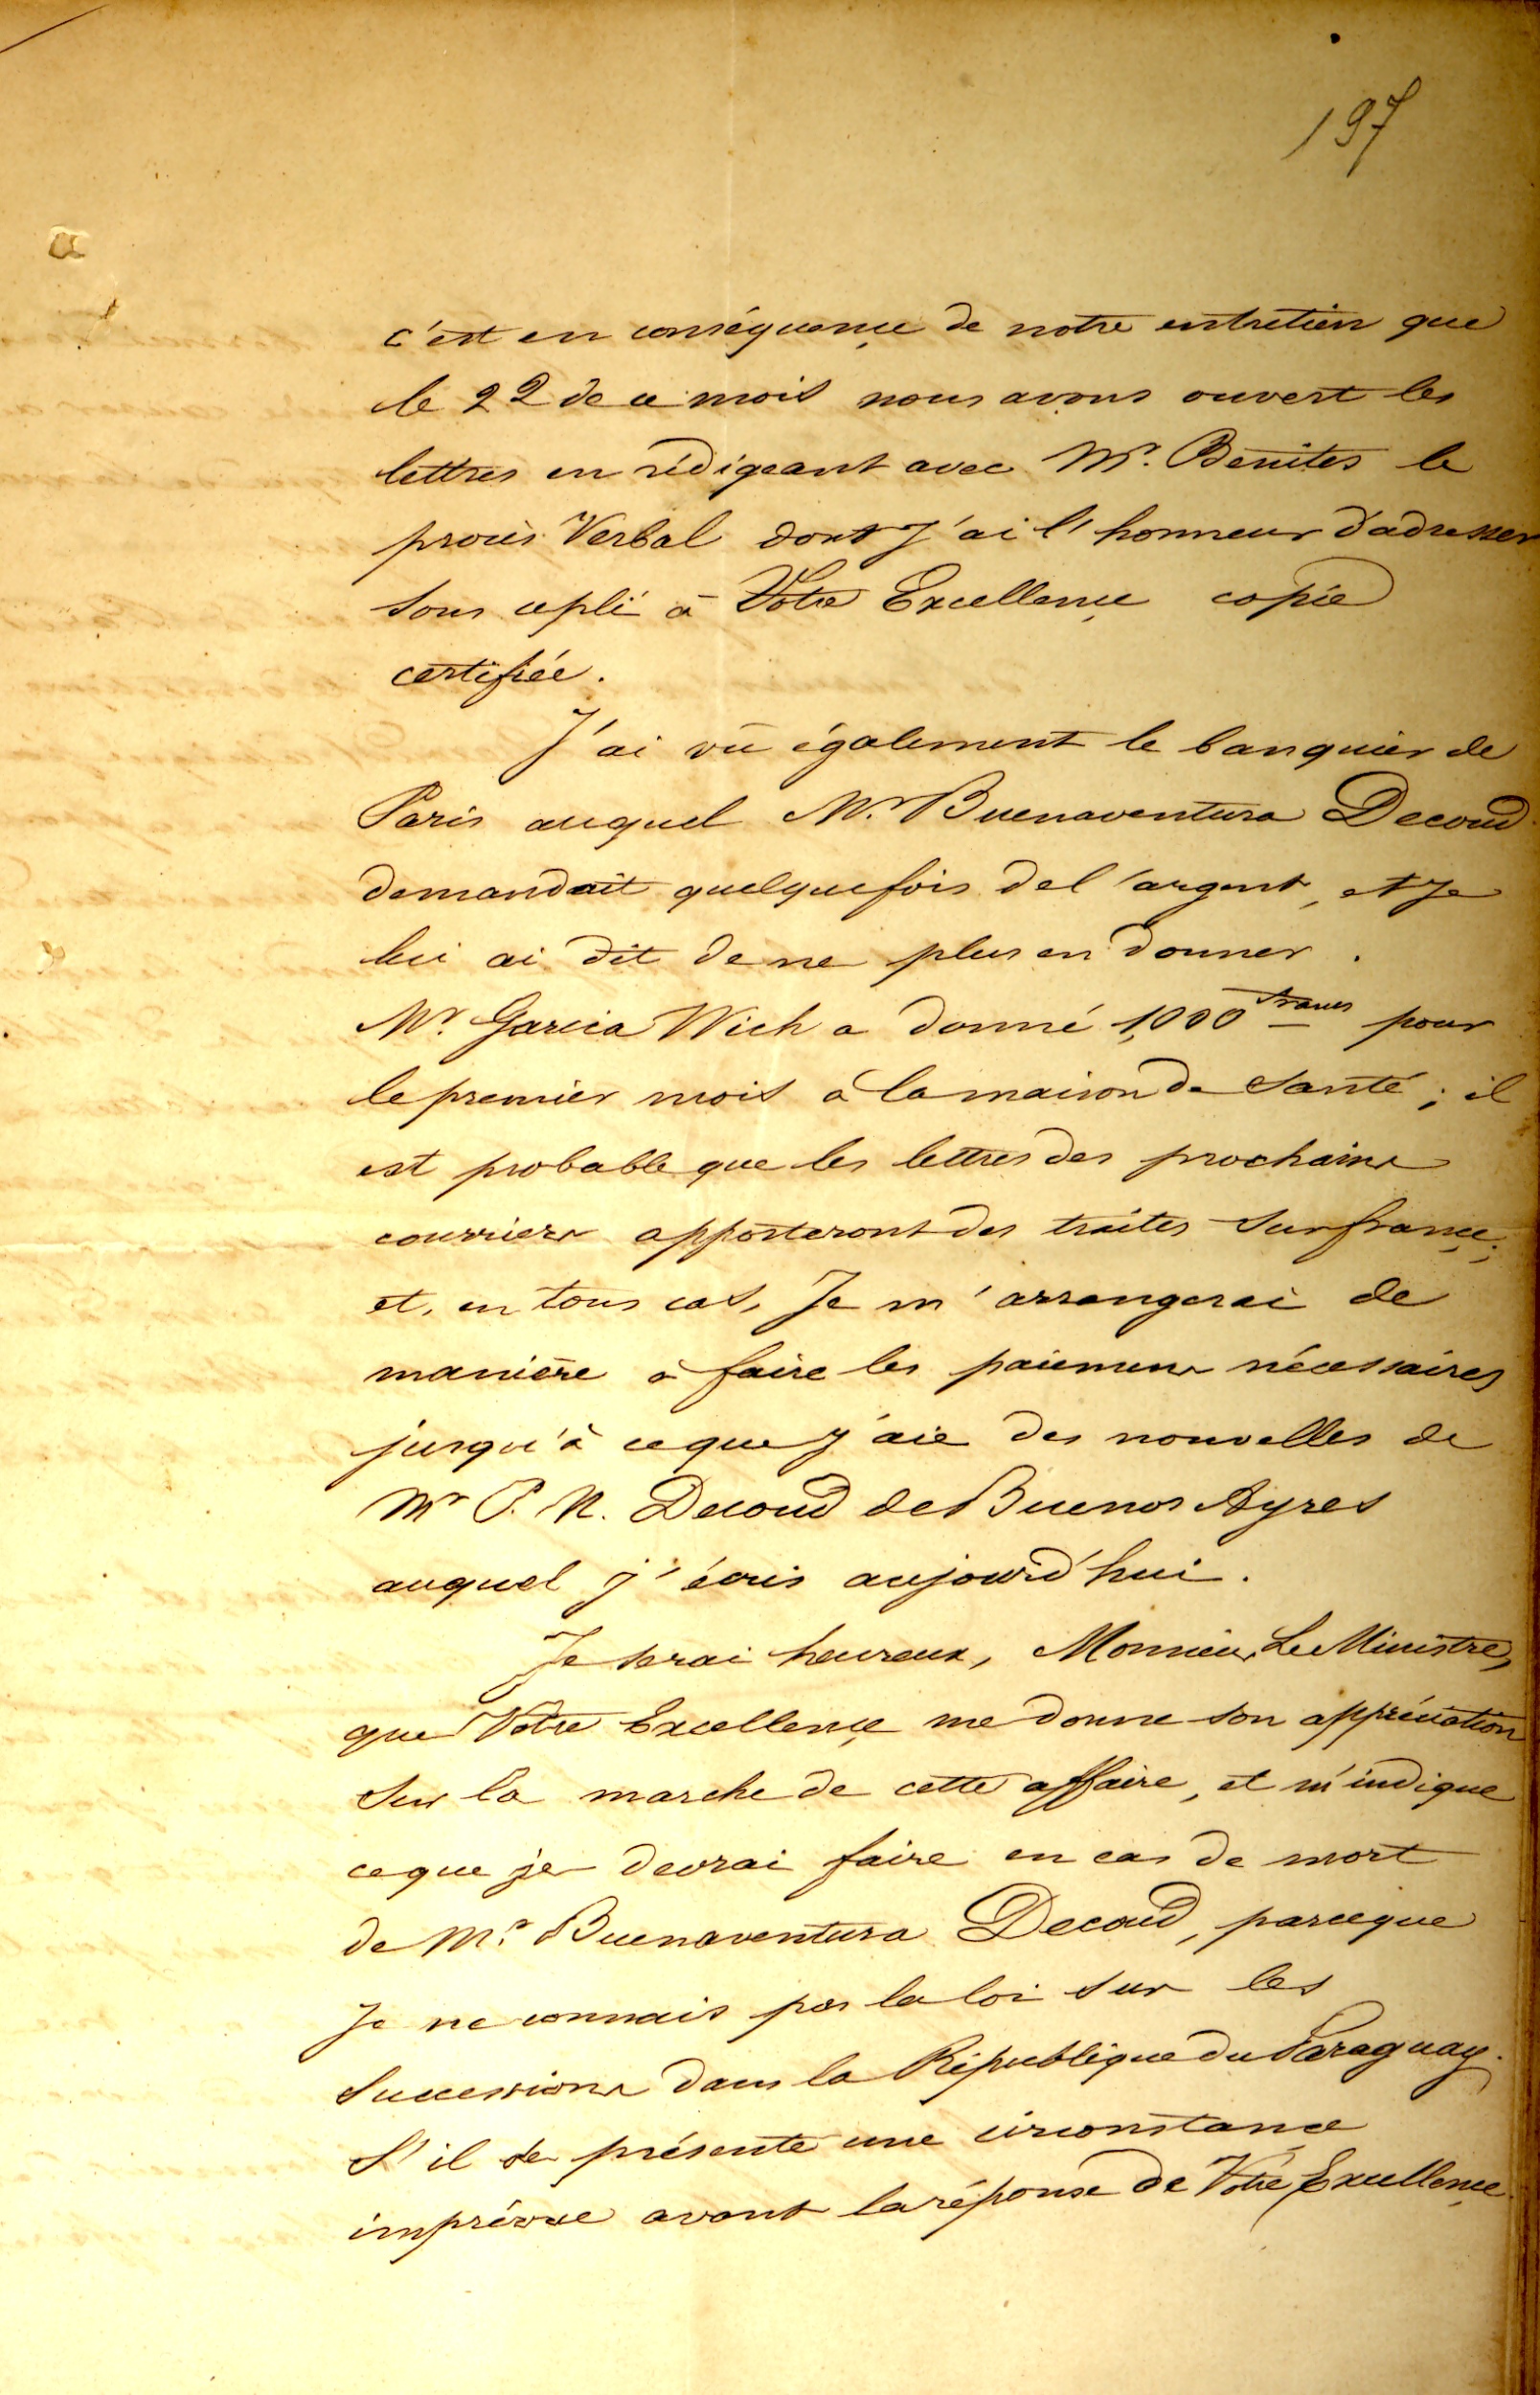 197
c'est en conséquençe de notre entretien que
le 22 de ce mois nous avons ouvert les
lettres en rédigeant avec Mr. Benites le
procès Verbal dont J'ai l'honneur d'adresser
sous ce pli à Votre Excellençe copie
certifiée.
J'ai vû également le banquier de
Paris auquel Mr. Buenaventura Decoud
demandait quelquefois de l'argent, et Je
lui ai dit de ne plus en donner.
Mr. Garcia Wich a donné 1,000 francs pour
le premier mois à la maison de Santé; il
est probable que les lettres des prochains
courriers apporteront des traites sur françe;
et, en tous cas, Je m'arrangerai de
manière à faire les paiemens nécessaires
jusqu'à ce que J'aie des nouvelles de
Mr P. N. Decoud de Buenos Ayres
auquel j'écris aujourd'hui.
Je serai heureux, Monsieur Le Ministre,
que Votre Excellençe me donne son appréciation
sur la marche de cette affaire, et m'indique
ce que je devrai faire en cas de mort
de Mr. Buenaventura Decoud, parceque
Je ne connais pas la loi sur les
successions dans la République du Paraguay.
S'il se présente une circonstance
imprévue avant la réponse de Votre Excellençe